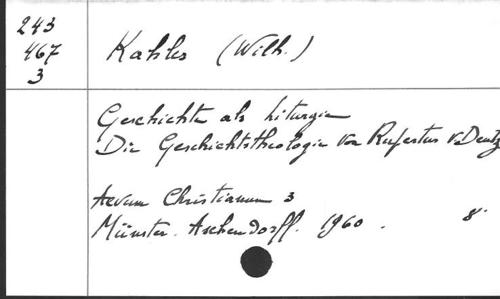 243
467
3
Kahles (Wilh.)
Geschichte als Liturgie
Die Geschichtstheologie von Rupertus v. Deutz
Aevum Christianum 3
Münster. Aschendorff. 1960. 8°